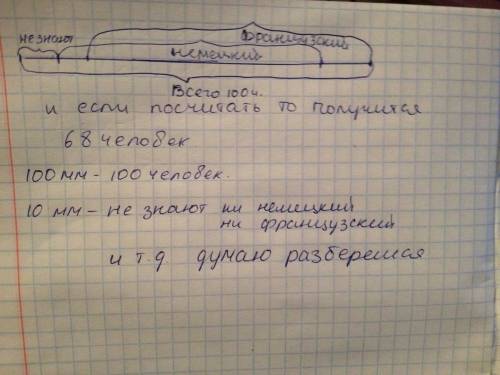 французский
не знают
немецкий
Всего 100 ч.
и если посчитать то получится
68 человек
100 мм - 100 человек.
10 мм - не знают ни немецкий
ни французский
и т.д думаю разберешся